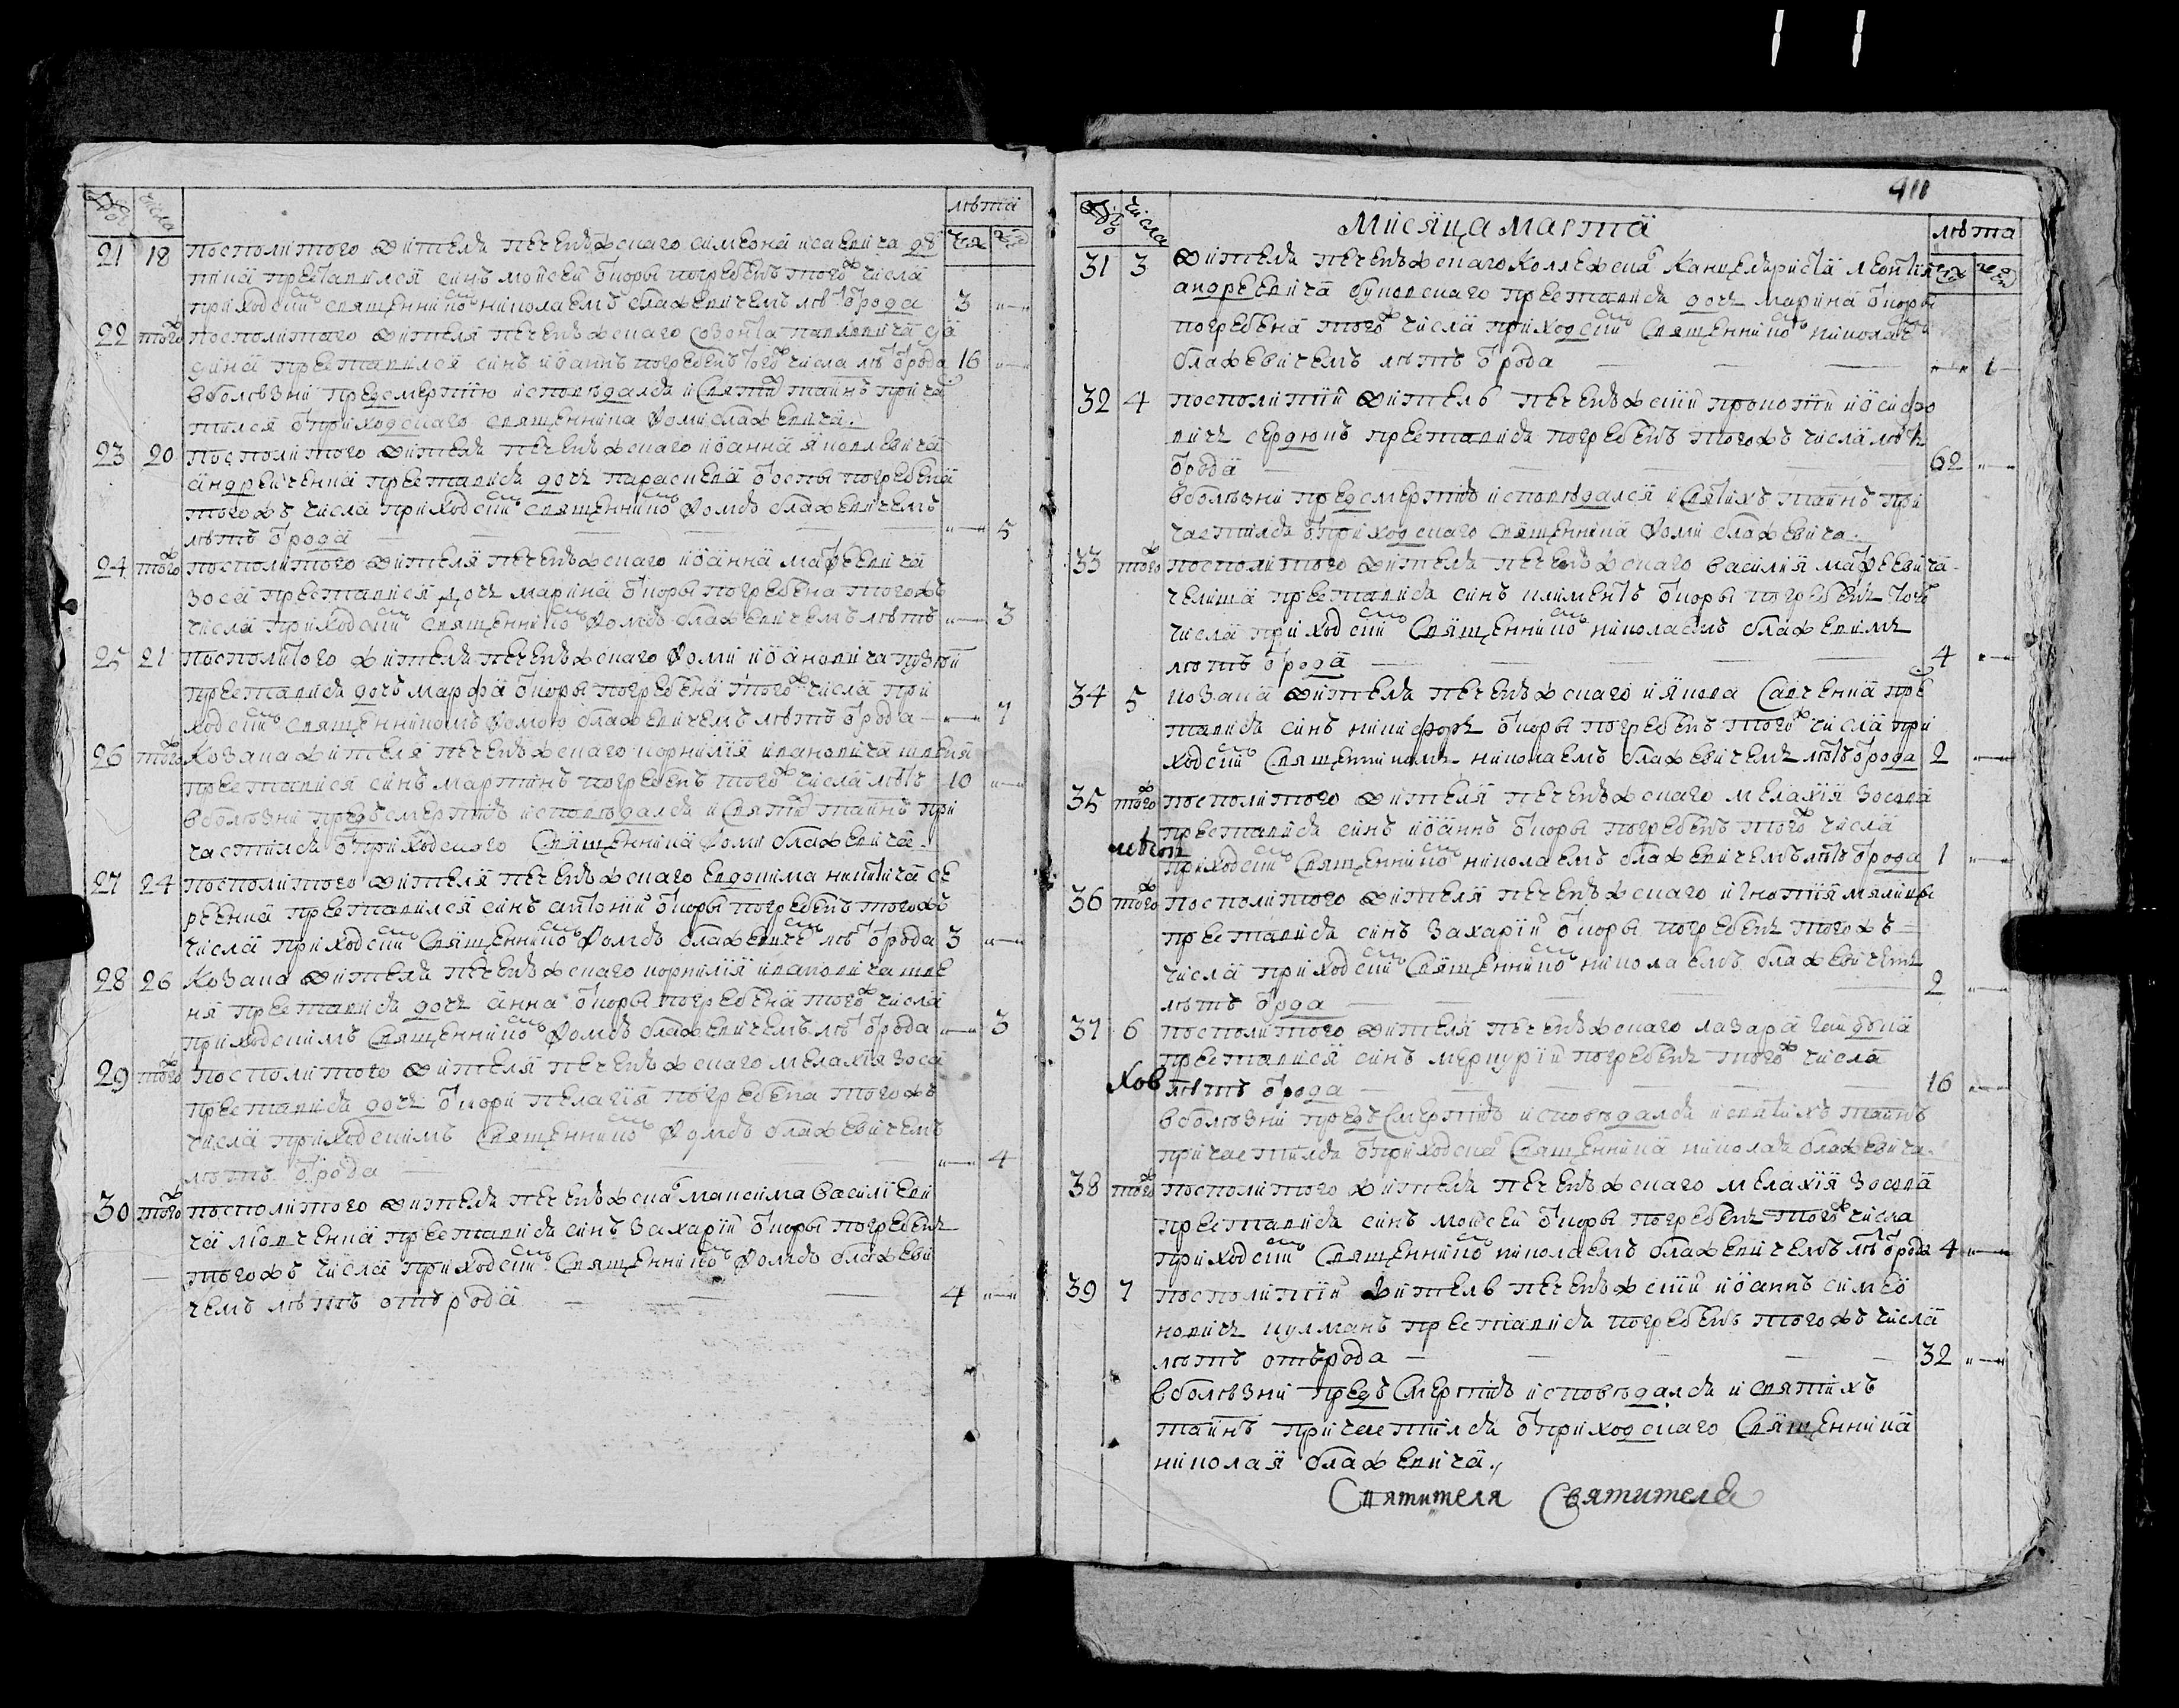 числа
лѣта
21 18 посполитого жителя печенѣжскаго симеона исаевича
преставился синъ мойсей ѿ коры погребенъ тогож числа
приходским священником николаемъ блажевичемъ лѣт ѿ рода 3
22 тогож посполитого жителя печенѣжскаго созонта павловича
преставился синъ иоаннъ погребенъ тогож числа лѣт ѿ рода 16
в болѣзни пред смертию исповѣдался и святих таинъ прича
стился ѿ приходскаго священника Ѳоми блажевича.
23 20 посполитого жителя печенѣжскаго иоанна яковлевича
андрейченка преставися дочь параскева ѿ оспы погребена
тогожъ числа приходским священником Ѳомою блажевичемъ
лѣтъ ѿ рода 5
24 тогож посполитого жителя печенѣжскаго иоанна маѳеевича
зоса преставися дочь марина ѿ коры погребена тогожъ
числа приходским священником Ѳомою блажевичемъ лѣтъ 3
25 21 посполитого жителя печенѣжскаго Ѳоми иоановича
преставися дочь марфа ѿ коры погребена тогож числа при
ходским священникомъ Ѳомою блажевичемъ лѣтъ ѿ рода 7
26 тогож козака жителя печенѣжскаго корнилия ивановича швеня
преставися синъ мартинъ погребенъ тогож числа лѣтъ 10
в болѣзни предъ смертию исповѣдался и святих таинъ при
частился ѿ приходскаго священника Ѳоми блажевича.
27 24 посполитого жителя печенѣжскаго евдокима никитича се
рченка преставился синъ антоний ѿ коры погребенъ тогожъ
числа приходским священником Ѳомою блажевичем лѣт ѿ рода 3
28 26 козака жителя печенѣжскаго корнилия ивановича шве
ня преставися дочь анна ѿ коры погребена тогож числа
приходскимъ священником Ѳомою блажевичемъ лѣт ѿ рода 3
29 тогож посполитого жителя печенѣжскаго мелахия зоса
преставися дочь ѿ кори пелагия погребена тогожъ
числа приходскимъ священником Ѳомою блажевичемъ
лѣтъ ѿ рода 4
30 тогож посполитого жителя печенѣжскаго максима василеви
ча преставися синъ захарий ѿ коры погребенъ
тогожъ числа приходским священником Ѳомою блажеви
чемъ лѣтъ отъ рода 4
Мисяца марта
числа
лѣта
31 3 жителя печенѣжскаго коллежскаго канцеляриста леонтия
андреевича преставися дочь марина ѿ коры
погребена тогож числа приходским священником николаем
блажевичемъ лѣтъ ѿ рода 1
32 4 посполитий житель печенѣжский прокопий иосифо
вичъ сердюкъ преставися погребенъ тогожъ числа лѣтъ
ѿ рода 62
в болѣзни пред смертию исповѣдался и святихъ таинъ при
частился ѿ приходскаго священника Ѳоми блажевича.
33 тогож посполитого жителя печенѣжскаго василия маѳеевича
преставися синъ климентъ ѿ коры погребенъ того
числа приходским священником николаемъ блажевичемъ
лѣтъ ѿ рода 4
34 5 козака жителя печенѣжскаго иякова савченка пре
ставися синъ никифоръ ѿ коры погребенъ тогож числа при
ходским священникомъ николаемъ блажевичемъ лѣтъ ѿ рода 2
35 тогож посполитого жителя печенѣжскаго мелахия зосова
преставися синъ иоаннъ ѿ коры погребенъ тогож числа
приходским священником николаемъ блажевичемъ лѣтъ ѿ рода 1
36 тогож посполитого жителя печенѣжскаго игнатия
преставися синъ захарий ѿ коры погребенъ тогожъ
числа приходским священником николаемъ блажевичемъ
лѣтъ ѿ рода 2
37 6 посполитого жителя печенѣжскаго лазаря
преставися синъ меркурий погребенъ тогож числа
лѣтъ ѿ рода 16
в болѣзни предъ смертию исповѣдался и святихъ таинъ
причастился ѿ приходскаго священника николая блажевича.
38 тогож посполитого жителя печенѣжскаго мелахия зосова
преставися синъ мойсей ѿ коры погребенъ тогож числа
приходским священником николаемъ блажевичемъ лѣт ѿ рода 4
39 7 посполитий житель печенѣжский иоаннъ симео
новичъ кулманъ преставися погребенъ тогожъ числа
лѣтъ отъ рода 32
в болѣзни предъ смертию исповѣдался и святихъ
таинъ причастился ѿ приходскаго священника
николая блажевича.
Святителя Святителя